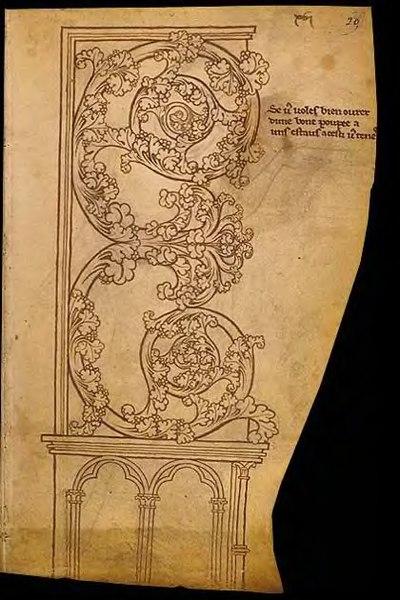 29
Se vͥ voles bien ovrer
dune bone poupee a
uns estaus a cesti vͥ tenes